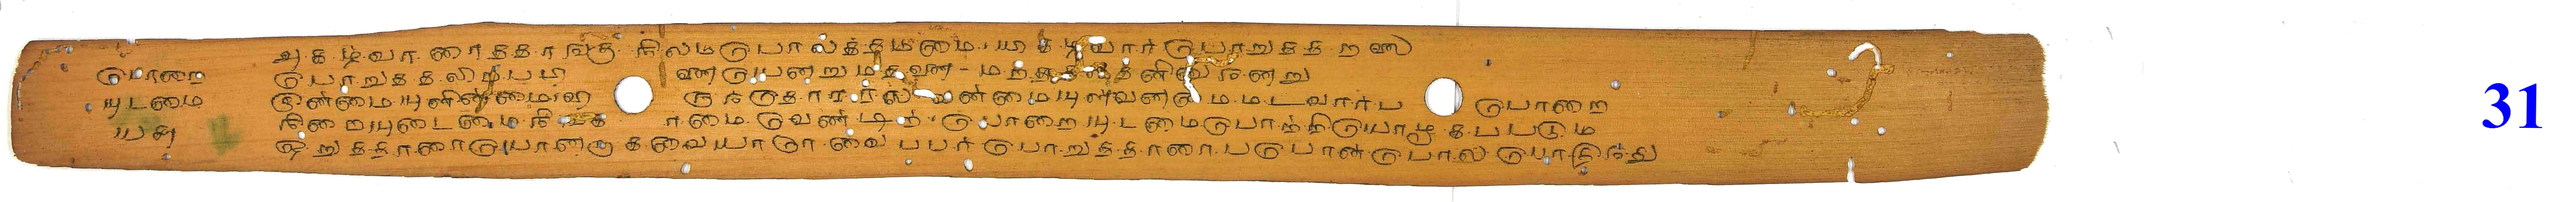 பொறை
யுடமை
யது
அகழ்வாரைத்தாங்கு நிலம்போலத்தம்மை யிகழ்வார்பொறுத்தறலை
பொறுத்தலிறப்பினை யென்றுமதனை மறத்தலதனினுநன்று
இன்மையுளின்மை விருந்தொரால் வன்மையுள்வன்மை மடவார்ப பொறை
நிறையுடைமை நீங்காமை வேண்டிற் பொறையுடமைபோற்றியொழுகபபடும
ஒறுத்தாரையொன்றாக வையாரே வைபபர் பொறுத்தாரைபபொன்போல பொதிந்து
31